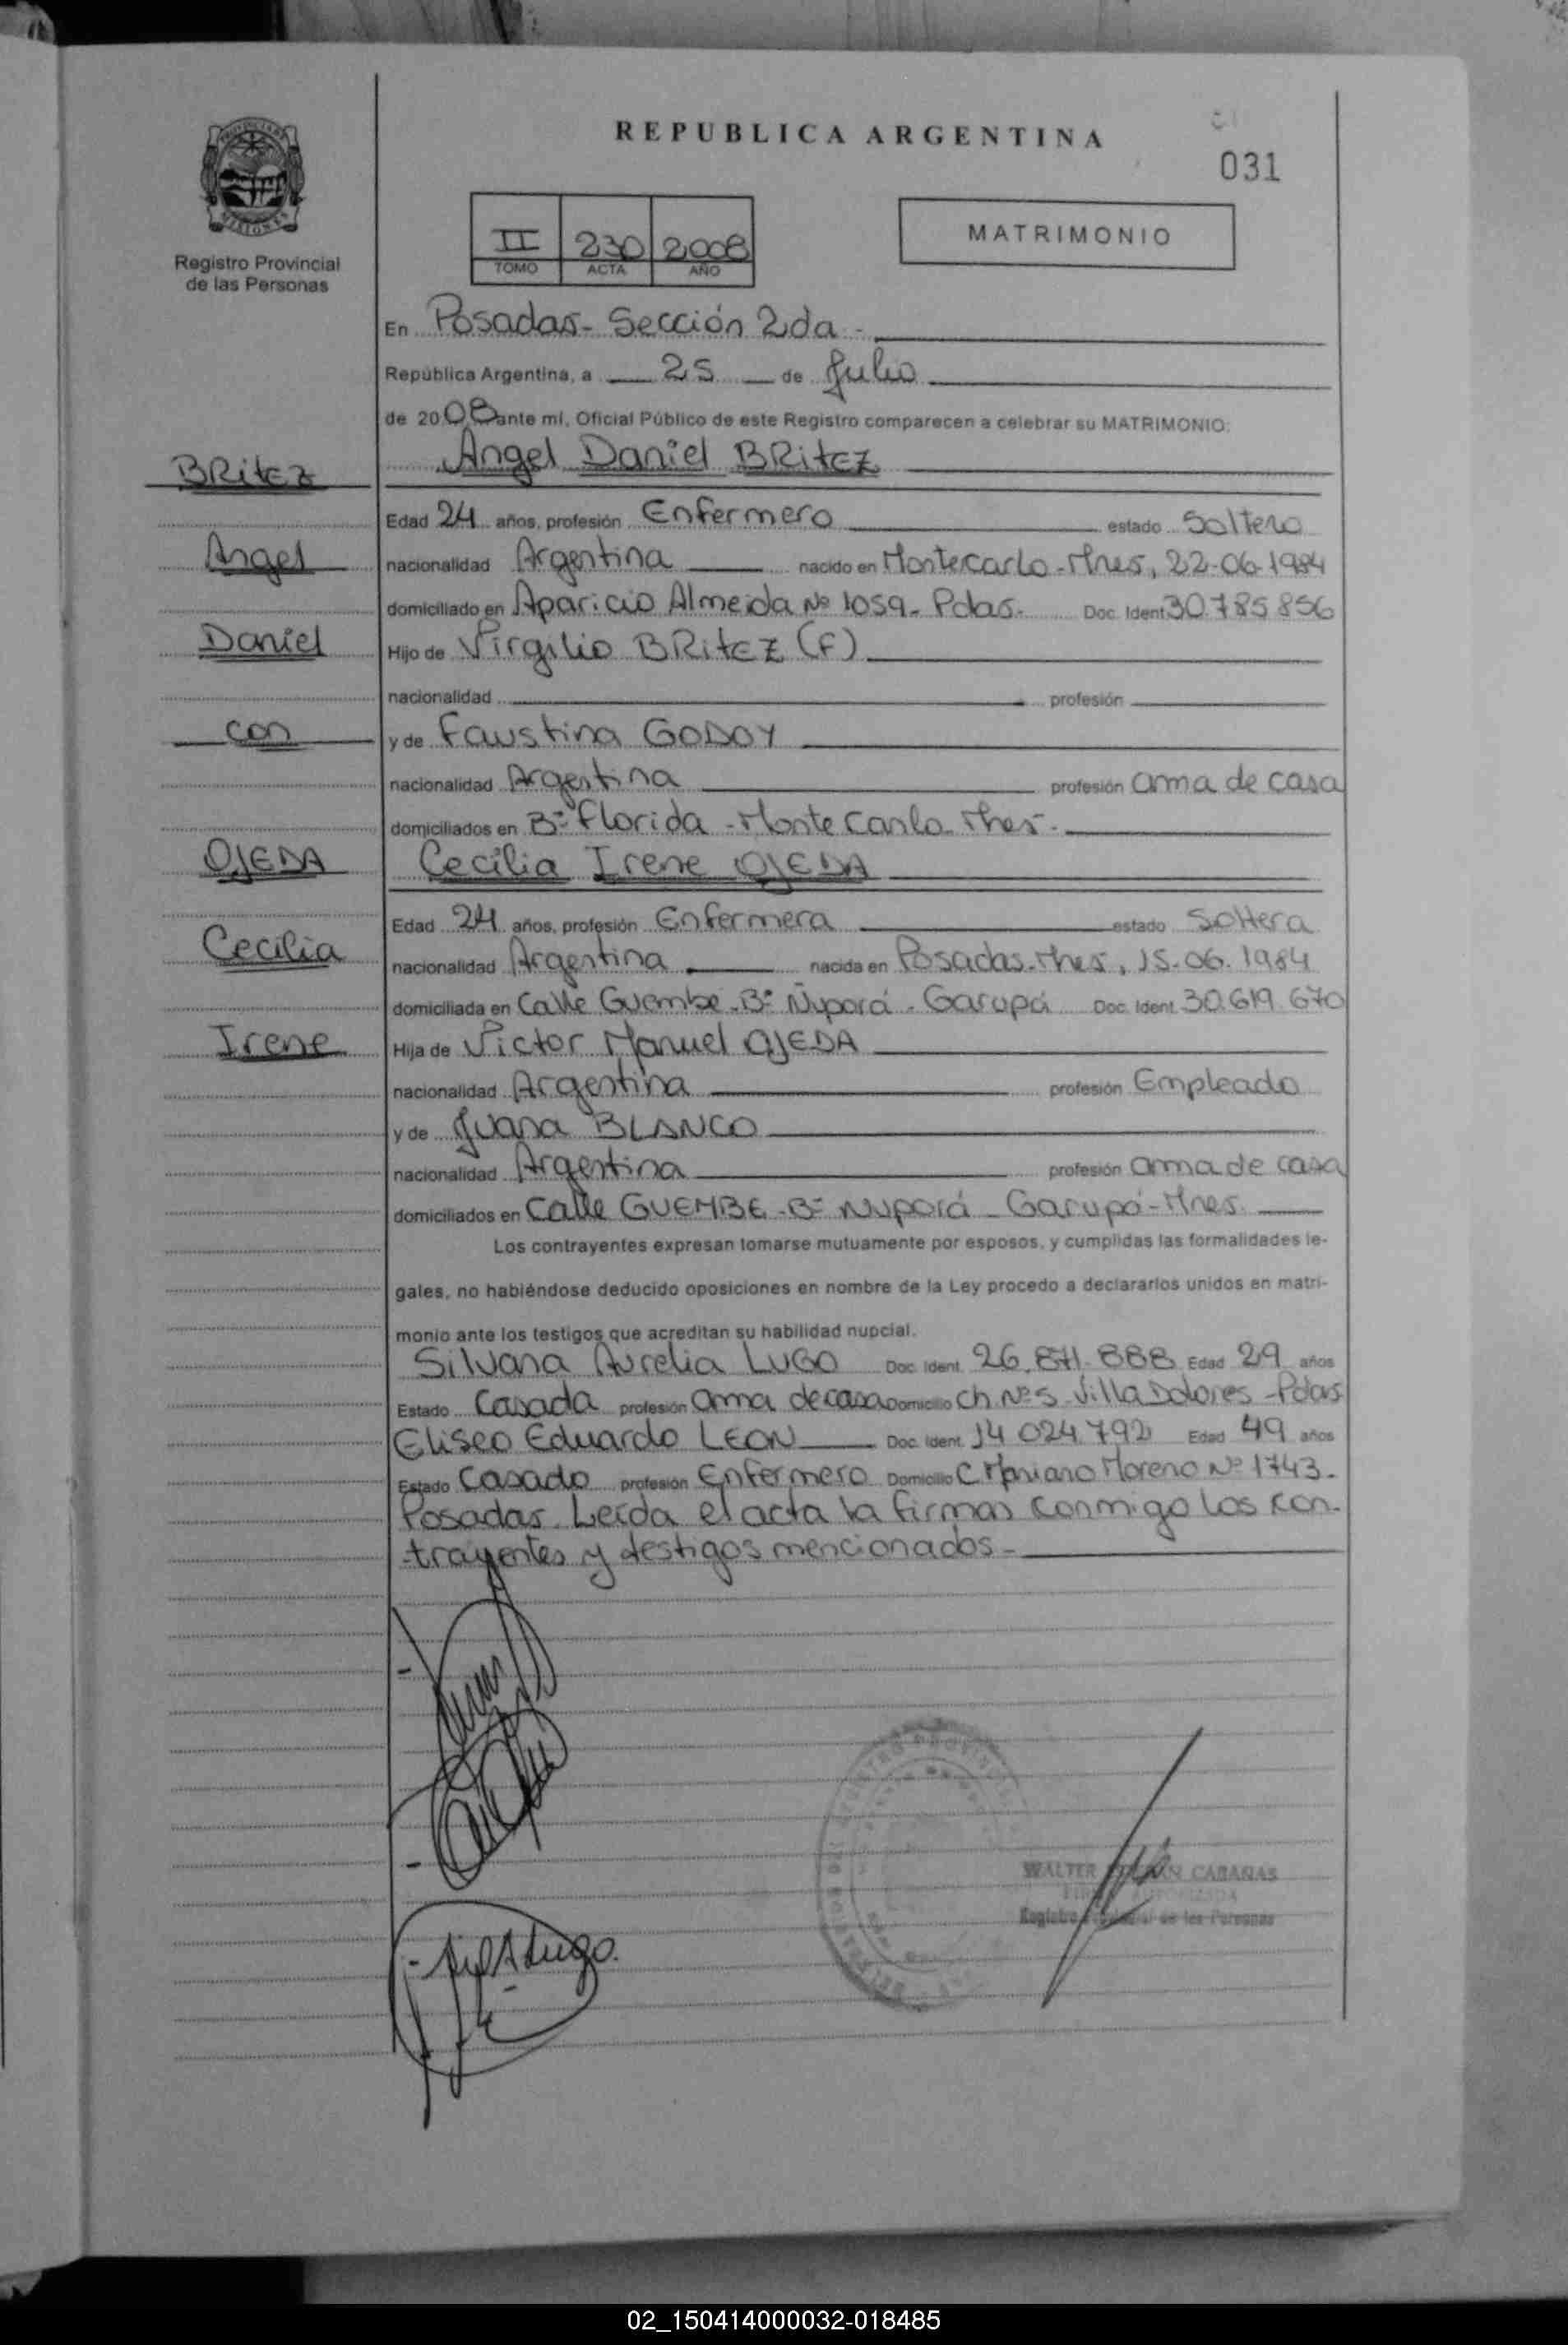 REPUBLICA ARGENTINA
031
Registro Provincial
de las Personas
II 230 2008
TOMO ACTA AÑO
MATRIMONIO
En Posadas- Sección 2da -
República Argentina, a 25 de Julio
de 2008 ante mí, Oficial Público de este Registro comparecen a celebrar su MATRIMONIO:
BRitEZ
Angel Daniel BRitEZ
Edad 24 años, profesión Enfermero estado Soltero
Angel
nacionalidad Argentina nacido en Montecarlo-Mnes, 22-06-1984
domiciliado en Aparicio Almeida Nº 1059- Pdas. Doc. Ident 30.785.856
Daniel
Hijo de Virgilio BRitEZ (F)
nacionalidad profesión
con
y de Faustina GODOY
nacionalidad Argentina profesión ama de casa
domiciliados en Bº Florida - Monte Carlo - Mnes -
OJEDA
Cecilia Irene OJEDA
Edad 24 años, profesión Enfermera estado Soltera
Cecilia
nacionalidad Argentina nacida en Posadas-Mnes, 15-06-1984
domiciliada en Calle Guembe - Bº Ñuporá - Garupá Doc. Ident. 30.619.670
Irene
Hija de Victor Manuel OJEDA
nacionalidad Argentina profesión Empleado
y de Juana BLANCO
nacionalidad Argentina profesión ama de casa
domiciliados en Calle GUEMBE - Bº Ñuporá - Garupá - Mnes.
Los contrayentes expresan tomarse mutuamente por esposos, y cumplidas las formalidades le-
gales, no habiéndose deducido oposiciones en nombre de la Ley procedo a declararlos unidos en matri-
monio ante los testigos que acreditan su habilidad nupcial.
Silvana Aurelia LUGO Doc. Ident. 26.871.888 Edad 29 años
Estado Casada profesión ama de casa Domicilio Ch Nº 5 - Villa Dolores - Pdas
Eliseo Eduardo LEON Doc. Ident. 14.024.792 Edad 49 años
Estado Casado profesión Enfermero Domicilio C. Mariano Moreno Nº 1743 -
Posadas. Leída el acta la firman conmigo los con-
trayentes y testigos mencionados -
WALTER CABAÑAS
Registro Provincial de las Personas
02_150414000032-018485